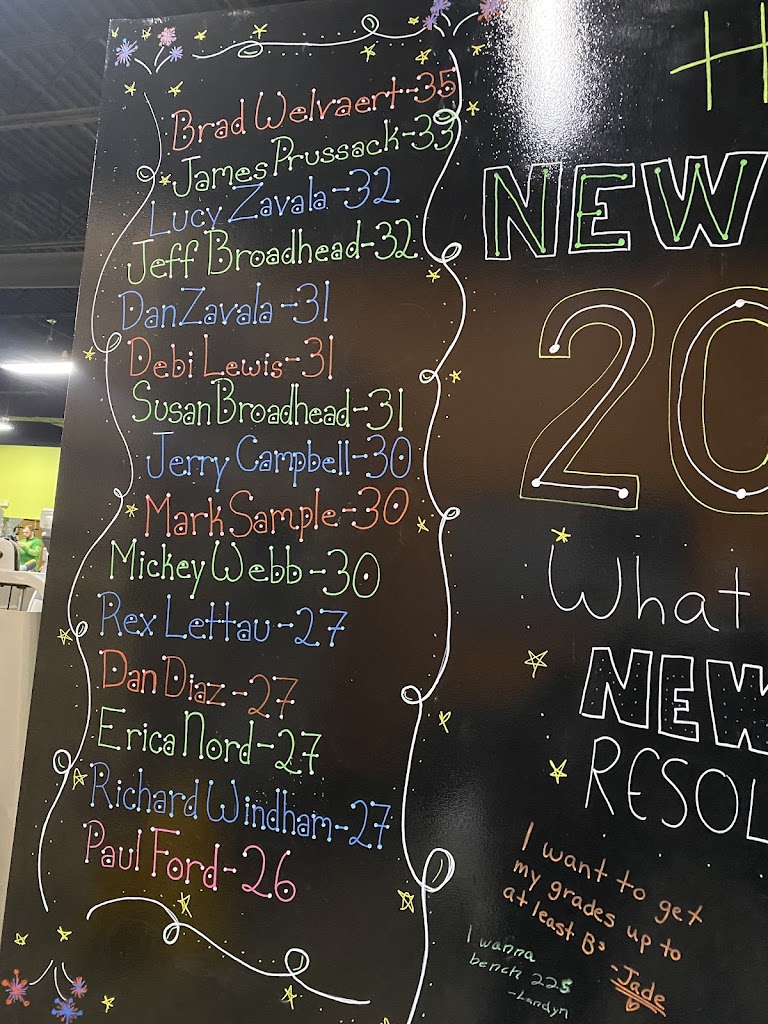 Brad Welvaert-35
James Prussack-33
Lucy Zavala-32
Jeff Broadhead-32
Dan Zavala-31
Debi Lewis-31
Susan Broadhead-31
Jerry Campbell-30
Mark Sample-30
Mickey Webb-30
Rex Lettau-27
Dan Diaz-27
Erica Nord-27
Richard Windham-27
Paul Ford-26
H
NEW
20
What
NEW
RESOL
I want to get
my grades up to
at least B's
-Jade
I wanna
bench 225
-Landyn